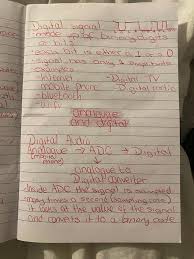 Digital signal
made up of binary digits
or bits
each bit is either 1 or 0
signal has only 2 amplitudes
examples
internet - Digital TV
mobile phone - Digital radio
bluetooth
wifi
analogue
and digital
Digital Audio
Analogue → ADC → Digital
analogue to
Digital Converter
Inside ADC the signal is sampled
many times a second (sampling rate)
it looks at the value of the signal
and converts it to a binary code